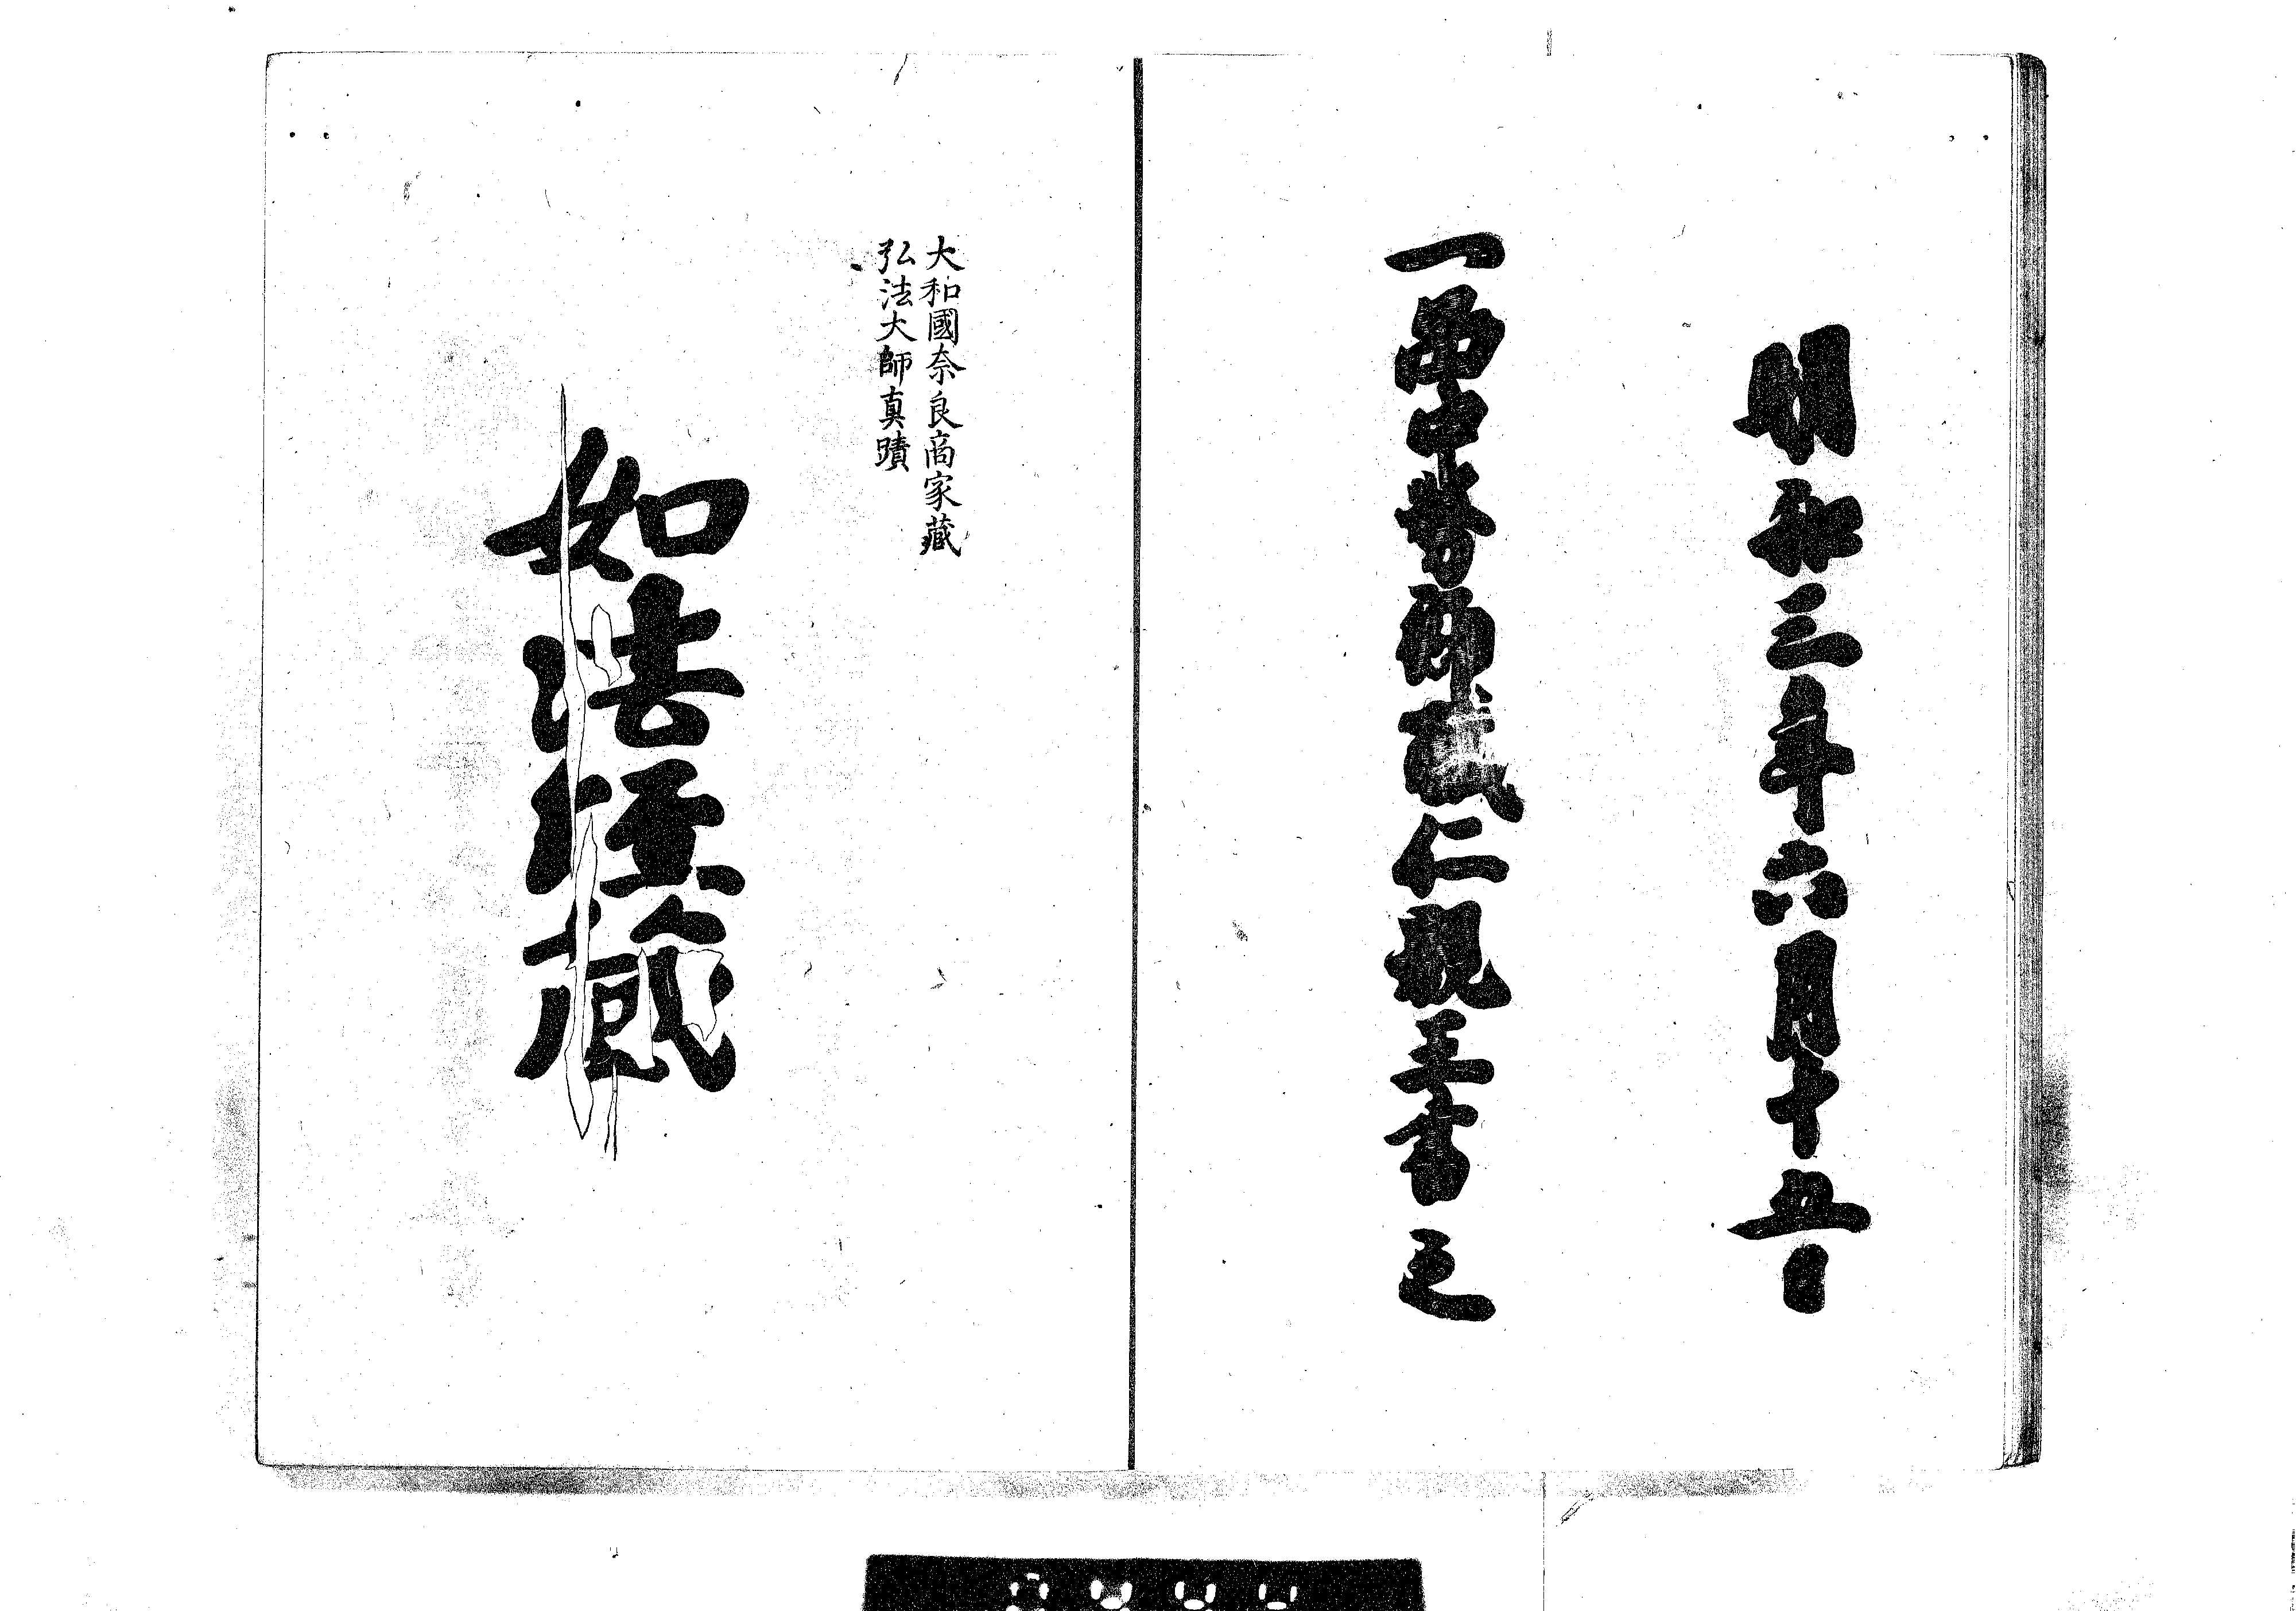 明和三年六月十五日
一品中務卿職仁親王書之
大和國奈良商家藏
弘法大師真蹟
如法経蔵